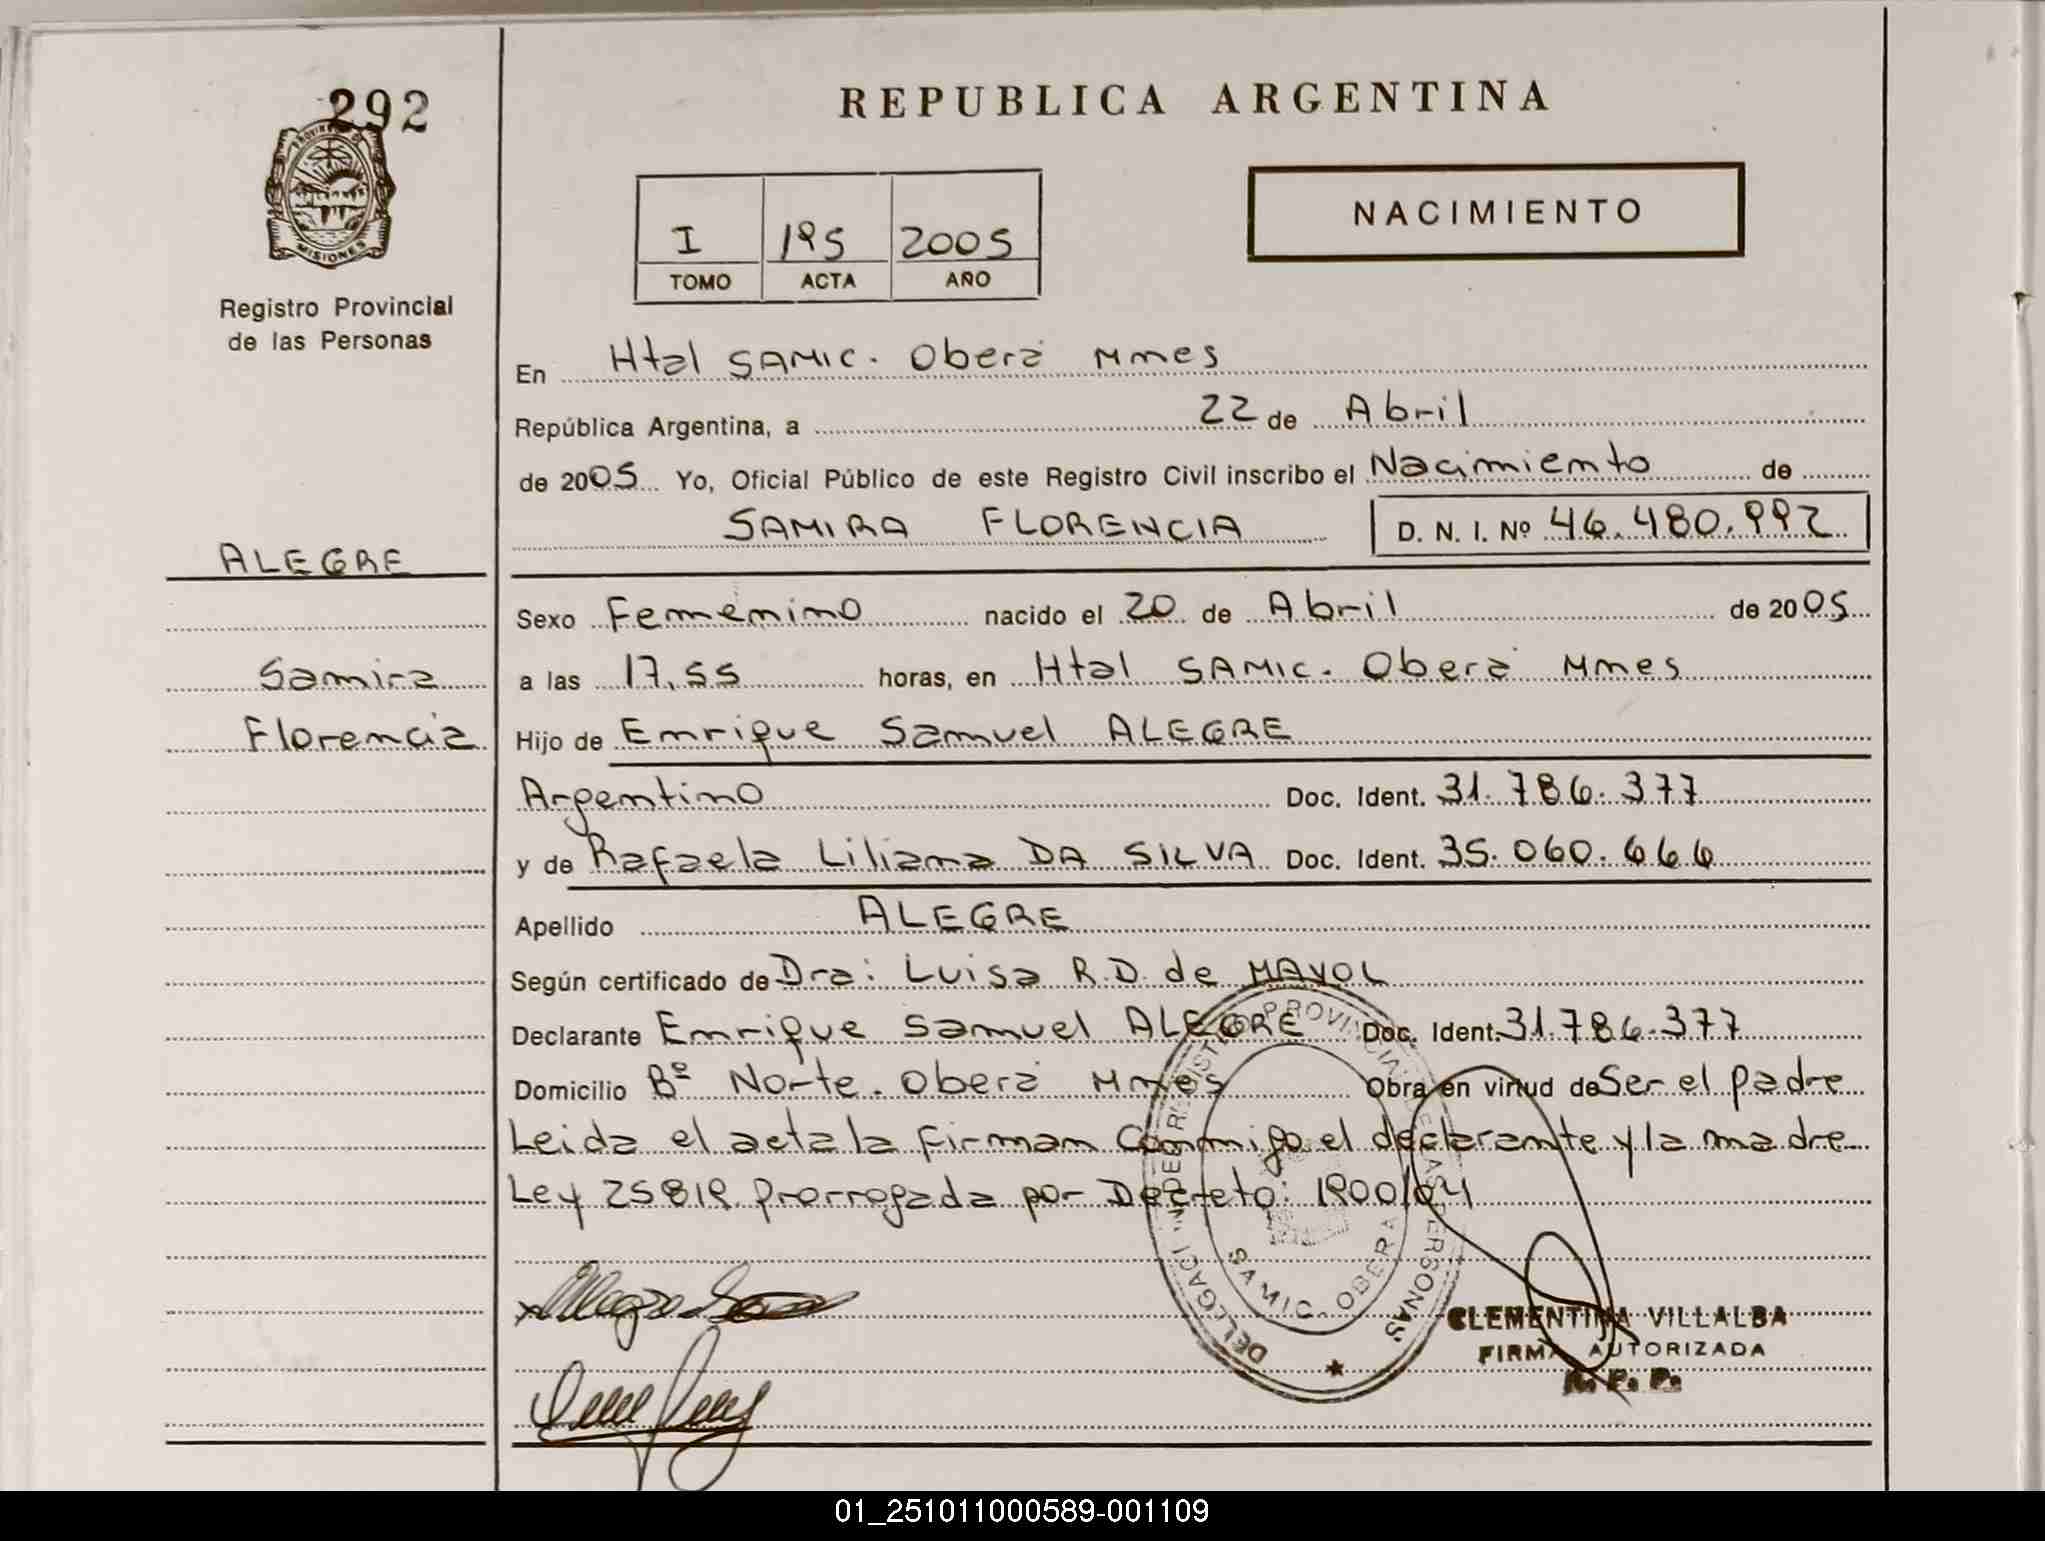 292
REPUBLICA ARGENTINA
PROVINCIA DE
MISIONES
NACIMIENTO
I 195 2005
TOMO ACTA AÑO
Registro Provincial
de las Personas
En Htal SAMIC. Oberá Mnes
República Argentina, a 22 de Abril
de 2005 Yo, Oficial Público de este Registro Civil inscribo el Nacimiento de
SAMIRA FLORENCIA D. N. I. Nº 46.480.992
ALEGRE
Sexo Femenino nacido el 20 de Abril de 2005
Samira
a las 17,55 horas, en Htal SAMIC. Oberá Mnes
Florencia
Hijo de Enrique Samuel ALEGRE
Argentino Doc. Ident. 31.786.377
y de Rafaela Liliana DA SILVA Doc. Ident. 35.060.666
Apellido ALEGRE
Según certificado de Dra: Luisa R.D. de MAYOL
Declarante Enrique Samuel ALEGRE Doc. Ident. 31.786.377
Domicilio Bº Norte. Oberá Mnes Obra en virtud de Ser el padre
Leida el acta la firman Conmigo el declarante y la madre
Ley 25819 prorrogada por Decreto: 1900/04
DELEGACI REGISTRO PROVINCIAL DE LAS PERSONAS
SAMIC. OBERA
CLEMENTINA VILLALBA
FIRMA AUTORIZADA
R. P. P.
01_251011000589-001109